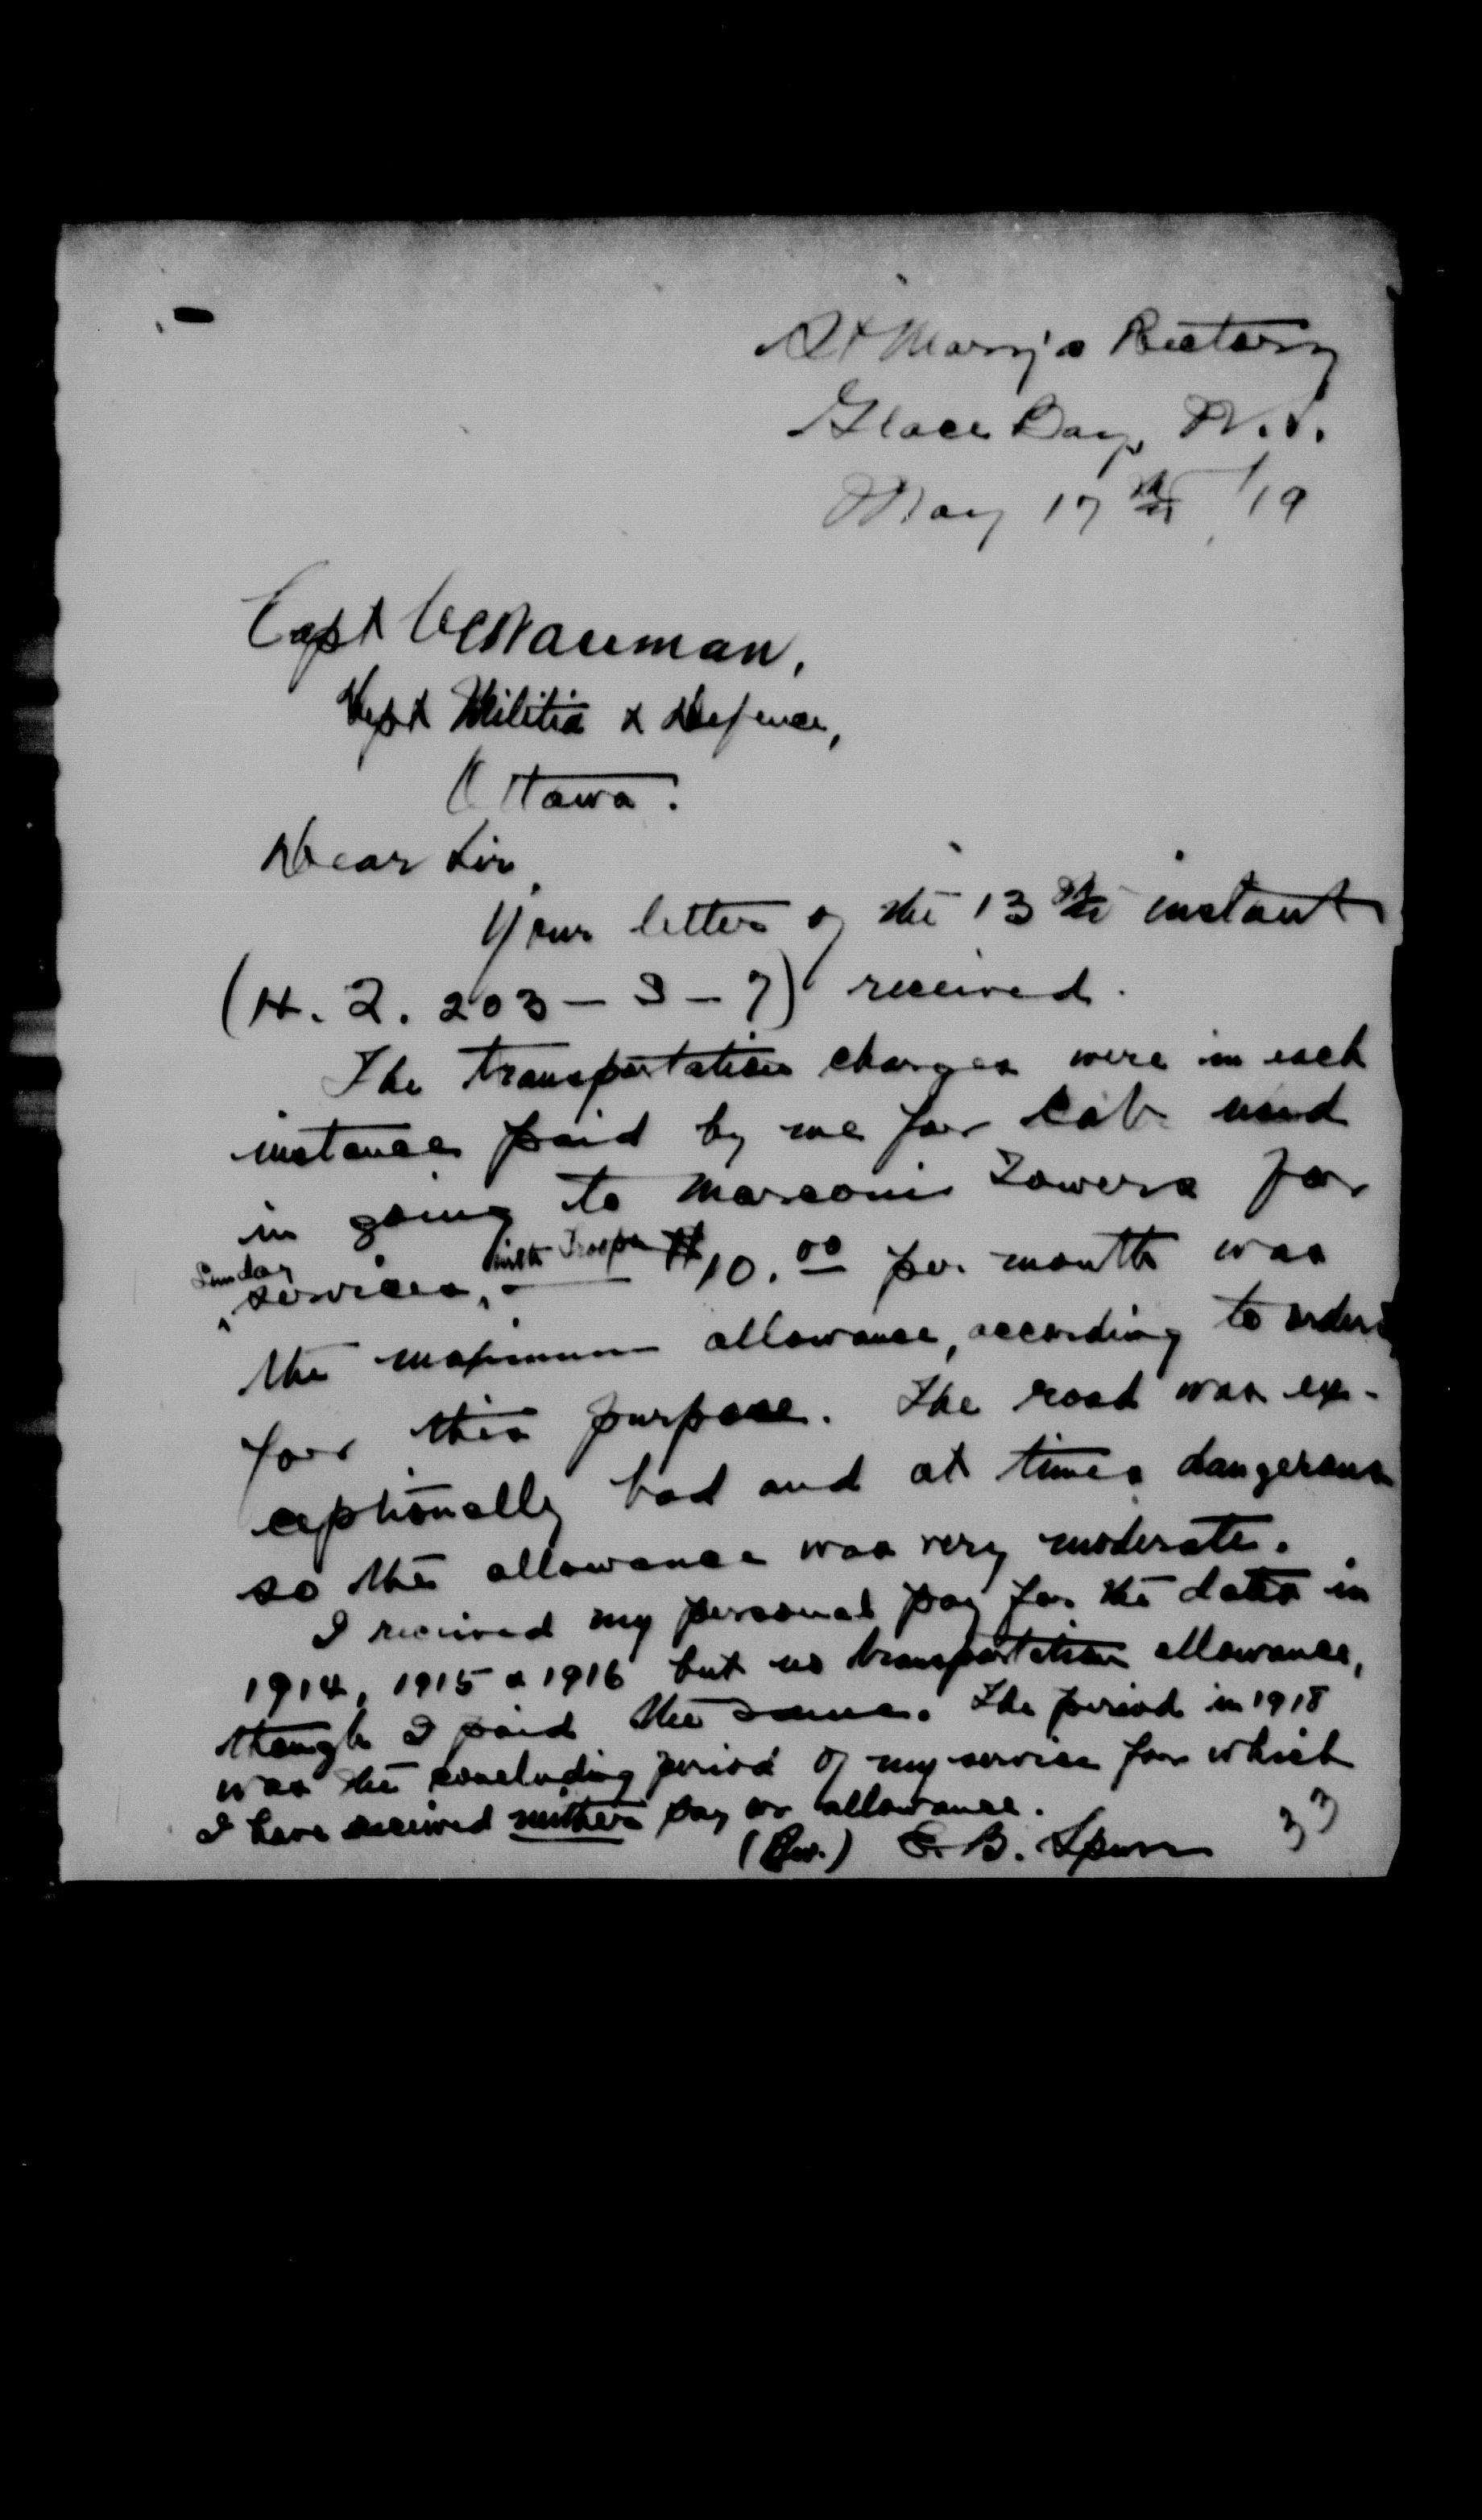 St Mary's Rectory
Glace Bay, N.S.
May 17th /19
Capt
Dept Militia & Defence,
Ottawa.
Dear Sir,
Your letter of the 13th instant
(H. Q. 203 – 3 – 7) received.
The transportation charges were in each
instance paid by me for cab used
in going to Marconi Towers for
Sunday services, with Troops $10.00 per month was
the maximum allowance, according to orders
for this purpose. The road was ex-
ceptionally bad and at times dangerous
so the allowance was very moderate.
I received my personal pay for the dates in
1914, 1915 & 1916 but no transportation allowance,
though I paid the same. The period in 1918
was the concluding period of my service for which
I have received neither pay or allowance.
(Rev.) E. B. Spurr
33